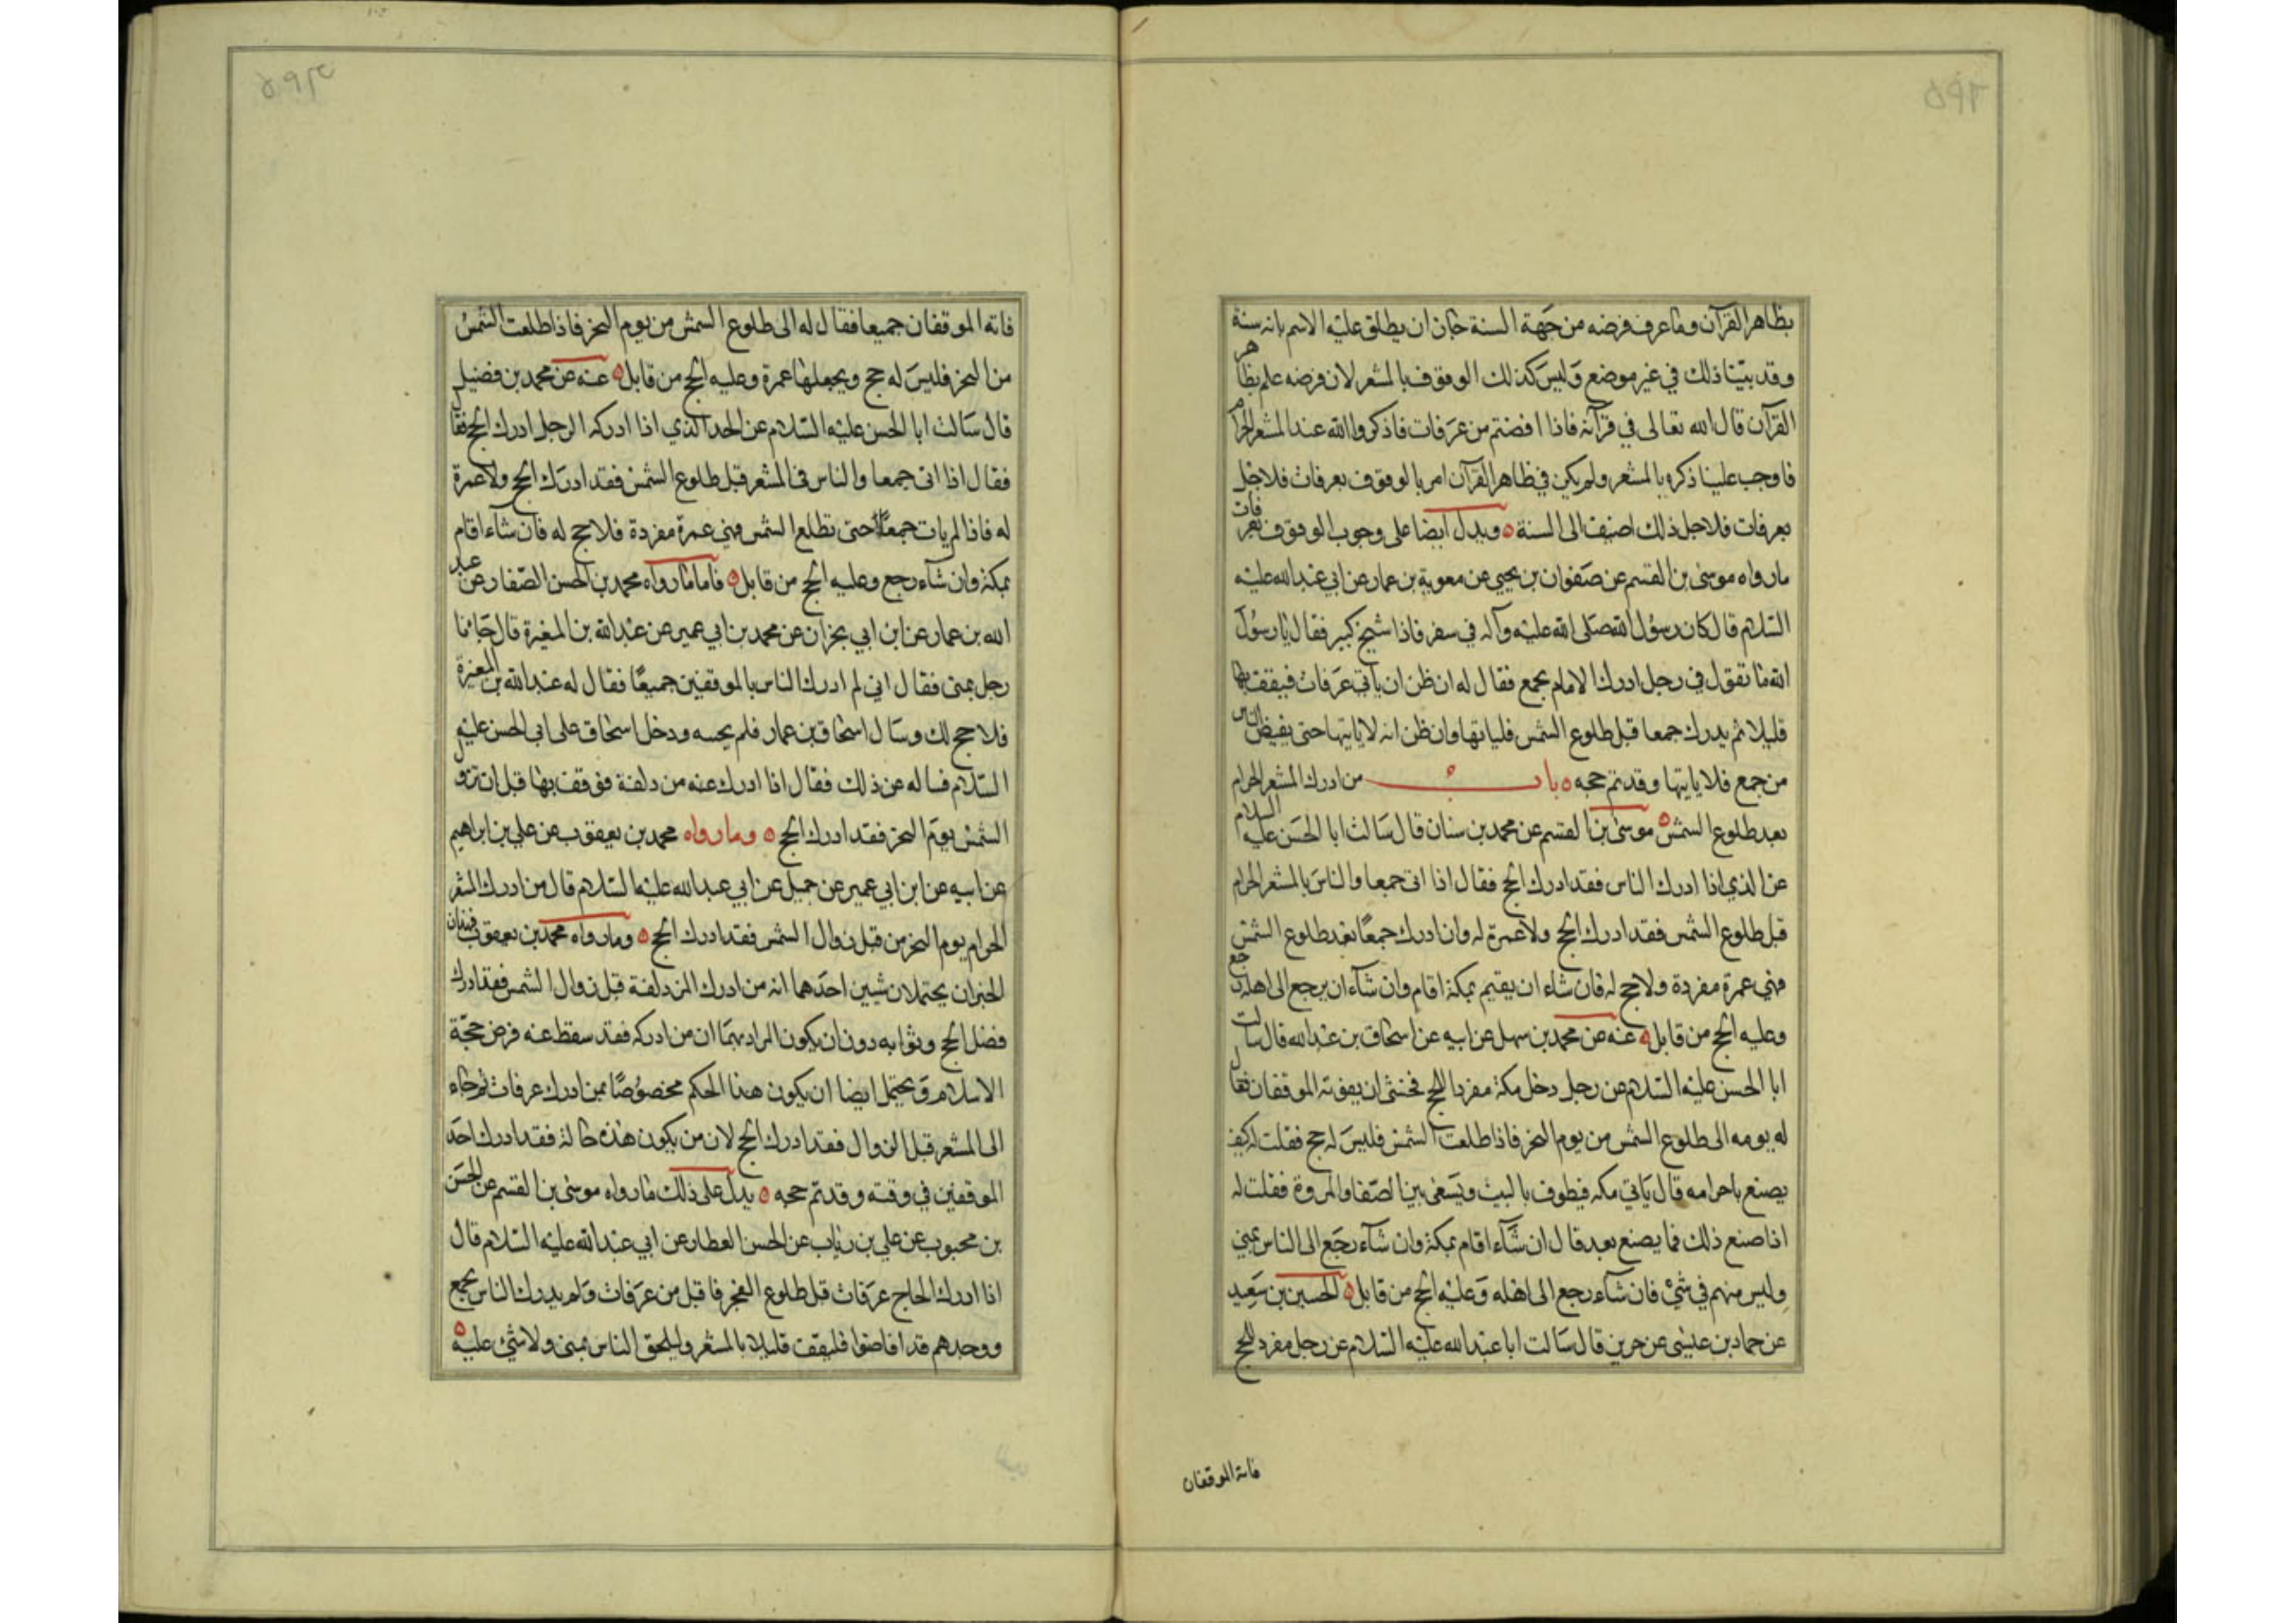 بظاهر القرآن وما عرف فرضه من جهة السنة جاز ان يطلق عليه الاسم بانه سنة
وقد بيّنا ذلك في غير موضع وليس كذلك الوقوف بالمشعر لان فرضه علم بظاهر
القرآن قال الله تعالى في قرآنه فاذا افضتم من عرفات فاذكروا الله عند المشعر الحرام
فاوجب علينا ذكره بالمشعر ولم يكن في ظاهر القرآن امر بالوقوف بعرفات فلاجل
بعرفات فلاجل ذلك اضيف الى السنة ويدل ايضا على وجوب الوقوف بعرفات
مارواه موسى بن القسم عن صفوان بن يحيى عن معوية بن عمار عن ابي عبد الله عليه
السلام قال كان رسول الله صلى الله عليه وآله في سفر فاذا شيخ كبير فقال يا رسول
الله ما تقول في رجل ادرك الامام بجمع فقال له ان ظن ان ياتي عرفات فيقف بها
قليلا ثم يدرك جمعا قبل طلوع الشمس فلياتها وان ظن انه لا ياتيها حتى يفيض الناس
من جمع فلا ياتيها وقد تم حجه باب من ادرك المشعر الحرام
بعد طلوع الشمس موسى بن القسم عن محمد بن سنان قال سالت ابا الحسن عليه السلام
عن الذي اذا ادرك الناس فقد ادرك الحج فقال اذا اتى جمعا والناس بالمشعر الحرام
قبل طلوع الشمس فقد ادرك الحج ولا عمرة له وان ادرك جمعًا بعد طلوع الشمس
فهي عمرة مفردة ولا حج له فان شاء ان يقيم بمكة اقام وان شاء ان يرجع الى اهله رجع
وعليه الحج من قابل عنه عن محمد بن سهل عن ابيه عن اسحاق بن عبد الله قال سالت
ابا الحسن عليه السلام عن رجل دخل مكة مفردا للحج فخشى ان يفوته الموقفان فقال
له يومه الى طلوع الشمس من يوم النحر فاذا طلعت الشمس فليس له حج فقلت له كيف
يصنع باحرامه قال ياتي مكه فيطوف بالبيت ويسعى بين الصفا والمروة فقلت له
اذا صنع ذلك فما يصنع بعد قال ان شاء اقام بمكة وان شاء رجع الى الناس بمنى
وليس منهم في شيء فان شاء رجع الى اهله وعليه الحج من قابل الحسين بن سعيد
عن حماد بن عيسى عن حريز قال سالت ابا عبد الله عليه السلام عن رجل مفرد للحج
فاته الموقفان
فاته الموقفان جميعا فقال له الى طلوع الشمس من يوم النحر فاذا طلعت الشمس
من النحر فليس له حج ويجعلها عمرة وعليه الحج من قابل عنه عن محمد بن فضيل
قال سالت ابا الحسن عليه السلام عن الحد الذي اذا ادركه الرجل ادرك الحج فقال
فقال اذا اتى جمعا والناس في المشعر قبل طلوع الشمس فقد ادرك الحج ولا عمرة
له فاذا لم يات جمعًا حتى تطلع الشمس فهي عمرة مفردة فلا حج له فان شاء اقام
بمكة وان شاء رجع وعليه الحج من قابل فاما ما رواه محمد بن الحسن الصفار عن عبد
الله بن عمار عن ابن ابي نجران عن محمد بن ابي عمير عن عبد الله بن المغيرة قال جاءنا
رجل بمنى فقال اني لم ادرك الناس بالموقفين جميعًا فقال له عبد الله بن المغيرة
فلا حج لك وسال اسحاق بن عمار فلم يجبه ودخل اسحاق على ابي الحسن عليه
السلام فساله عن ذلك فقال اذا ادرك عنه مزدلفة فوقف بها قبل ان تزول
الشمس يوم النحر فقد ادرك الحج وما رواه محمد بن يعقوب عن علي بن ابراهيم
عن ابيه عن ابن ابي عمير عن جميل عن ابي عبد الله عليه السلام قال من ادرك المشعر
الحرام يوم النحر من قبل زوال الشمس فقد ادرك الحج وما رواه محمد بن يعقوب فهذان
الخبران يحتملان شيين احدهما انه من ادرك المزدلفة قبل زوال الشمس فقد ادرك
فضل الحج وثوابه دون ان يكون المراد بهما ان من ادركه فقد سقط عنه فرض حجة
الاسلام ويحتمل ايضا ان يكون هذا الحكم مخصوصًا بمن ادرك عرفات ثم جاء
الى المشعر قبل الزوال فقد ادرك الحج لان من يكون هذه حاله فقد ادرك احد
الموقفين في وقته وقد تم حجه يدل على ذلك ما رواه موسى بن القسم عن الحسن
بن محبوب عن علي بن رئاب عن الحسن العطار عن ابي عبد الله عليه السلام قال
اذا ادرك الحاج عرفات قبل طلوع الفجر فاقبل من عرفات ولم يدرك الناس بجمع
ووجدهم قد افاضوا فليقف قليلا بالمشعر وليلحق الناس بمنى ولا شيء عليه